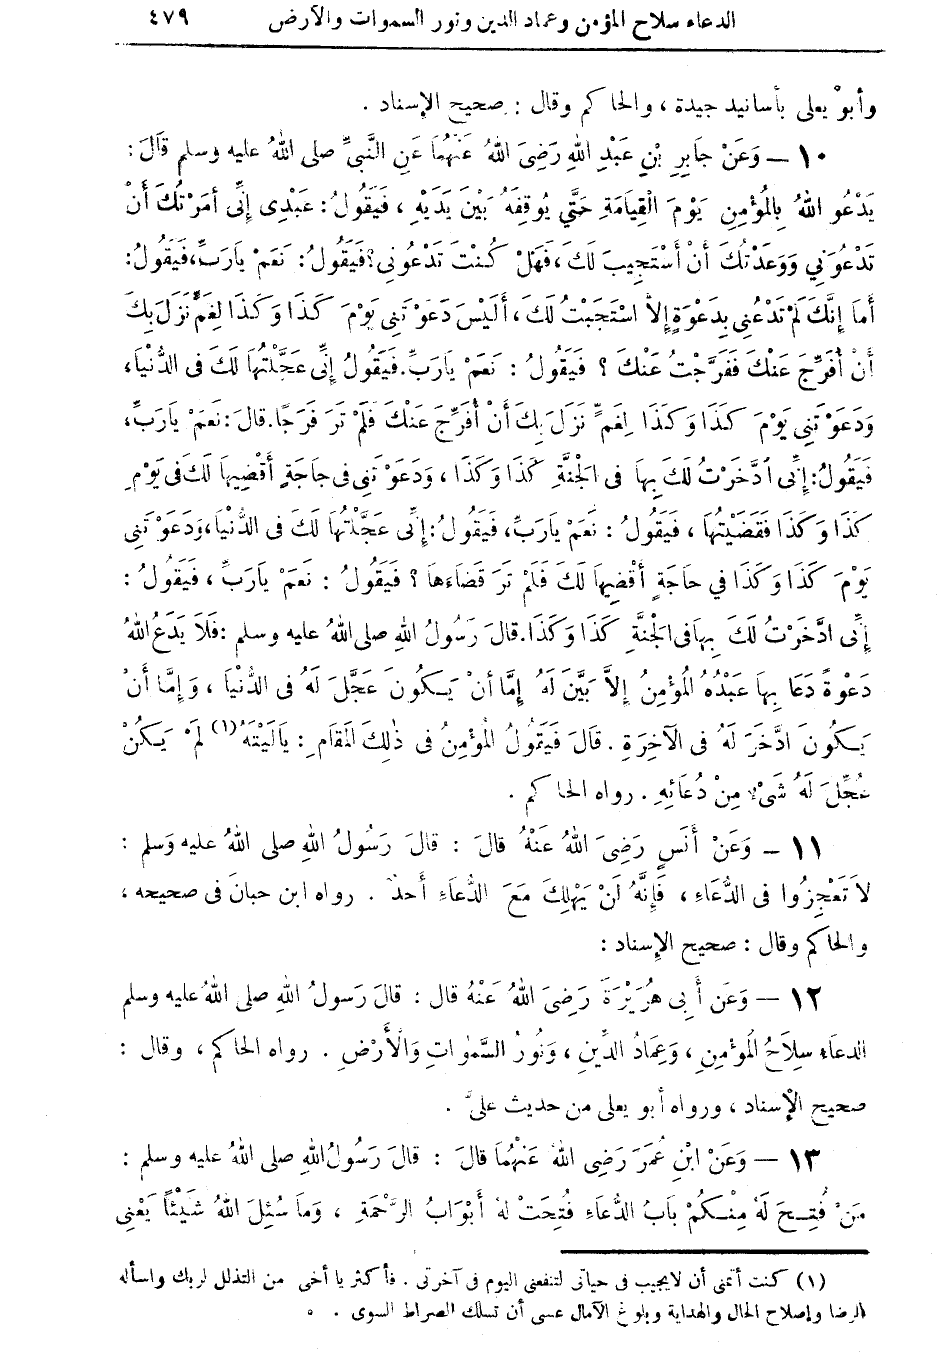 الدعاء سلاح المؤمن وعماد الدين ونور السموات والأرض ٤٧٩
وأبوْ يعلى بأسانيد جيدة ، والحاكم وقال : صحيح الإسناد .
١٠ – وَعَنْ جَابِرِ بْنِ عَبْدِ اللهِ رَضِيَ اللهُ عَنْهُمَا عَنِ النَّبِيِّ صلى اللهُ عليه وسلم قَالَ :
يَدْعُو اللهُ بِالْمُؤْمِنِ يَوْمَ الْقِيَامَةِ حَتَّي يُوقِفَهُ بَيْنَ يَدَيْهِ ، فَيَقُولُ : عَبْدِى إِنِّي أَمَرْتُكَ أَنْ
تَدْعُوَنِي وَوَعَدْتُكَ أَنْ أَسْتَجِيبَ لَكَ ، فَهَلْ كُنْتَ تَدْعُونِي ؟ فَيَقُولُ : نَعَمْ يَارَبِّ ، فَيَقُولُ :
أَمَا إِنَّكَ لَمْ تَدْعُنِي بِدَعْوَةٍ إِلاَّ اسْتَجَبْتُ لَكَ ، أَلَيْسَ دَعَوْتَنِي يَوْمَ كَذَا وَكَذَا لِغَمٍّ نَزَلَ بِكَ
أَنْ أُفَرِّجَ عَنْكَ فَفَرَّجْتُ عَنْكَ ؟ فَيَقُولُ : نَعَمْ يَارَبِّ . فَيَقُولُ إِنِّي عَجَّلْتُهَا لَكَ فى الدُّنْيَا ،
وَدَعَوْتَنِي يَوْمَ كَذَا وَكَذَا لِغَمٍّ نَزَلَ بِكَ أَنْ أُفَرِّجَ عَنْكَ فَلَمْ تَرَ فَرَجًا . قالَ : نَعَمْ يَارَبِّ ،
فَيَقُولُ : إِنِّي ادَّخَرْتُ لَكَ بِهَا فى الْجَنَّةِ كَذَا وَكَذَا ، وَدَعَوْتَنِي فى حَاجَةٍ أَقْضِيهَا لَكَ فى يَوْمِ
كَذَا وَكَذَا فَقَضَيْتُهَا ، فَيَقُولُ : نَعَمْ يَارَبِّ ، فَيَقُولُ : إِنِّي عَجَّلْتُهَا لَكَ فى الدُّنْيَا ، وَدَعَوْتَنِي
يَوْمَ كَذَا وَكَذَا فِي حَاجَةٍ أَقْضِيهَا لَكَ فَلَمْ تَرَ قَضَاءَهَا ؟ فَيَقُولُ : نَعَمْ يَارَبِّ ، فَيَقُولُ :
إِنِّي ادَّخَرْتُ لَكَ بِهَا فى الْجَنَّةِ كَذَا وَكَذَا . قالَ رَسُولُ اللهِ صلى اللهُ عليه وسلم : فَلاَ يَدَعُ اللهُ
دَعْوَةً دَعَا بِهَا عَبْدُهُ الْمُؤْمِنُ إِلاَّ بَيَّنَ لَهُ إِمَّا أَنْ يَكُونَ عَجَّلَ لَهُ فى الدُّنْيَا ، وَإِمَّا أَنْ
يَكُونَ ادَّخَرَ لَهُ فى الآخِرَةِ . قالَ فَيَقُولُ الْمُؤْمِنُ فى ذٰلِكَ الْمَقَامِ : يَالَيْتَهُ (١) لَمْ يَكُنْ
عُجِّلَ لَهُ شَىْءٌ مِنْ دُعَائِهِ . رواه الحاكم .
١١ – وَعَنْ أَنَسٍ رَضِيَ اللهُ عَنْهُ قالَ : قالَ رَسُولُ اللهِ صلى اللهُ عليه وَسلم :
لاَ تَعْجِزُوا فى الدُّعَاءِ ، فَإِنَّهُ لَنْ يَهْلِكَ مَعَ الدُّعَاءِ أَحَدٌ . رواه ابن حبانَ فى صحيحه ،
والحاكم وقال : صحيح الإسناد :
١٢ – وَعَن أَبِى هُرَيْرَةَ رَضِيَ اللهُ عَنْهُ قال : قالَ رَسولُ اللهِ صلى اللهُ عليه وسلم
الدعَاء سِلاَحُ الْمُؤْمِنِ ، وَعِمَادُ الدِّينِ ، وَنُورُ السَّمٰوَاتِ وَالْأَرْضِ . رواه الحاكم ، وقال :
صحيح الإسناد ، ورواه أبو يعلى من حديث علىّ .
١٣ – وَعَنِ ابْنِ عُمَرَ رَضِيَ اللهُ عَنْهُمَا قالَ : قالَ رَسُولُ اللهِ صلى اللهُ عليه وسلم :
مَنْ فُتِحَ لَهُ مِنْكُمْ بَابُ الدُّعَاءِ فُتِحَتْ لهُ أَبْوَابُ الرَّحْمَةِ ، وَمَا سُئِلَ اللهُ شَيْئًا يَعْنِي
(١) كنت أتمنى أن لايجيب فى حياتى لتنفعنى اليوم فى آخرتى . فأكثر يا أخى من التذلل لربك واسأله
الرضا وإصلاح الحال والهداية وبلوغ الآمال عسى أن تسلك الصراط السوى .